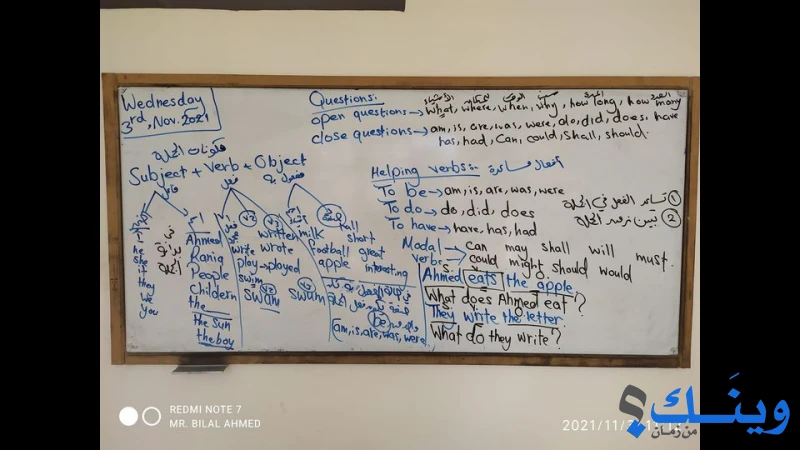 Wednesday
3rd, Nov. 2021
Questions:
open questions → what, where, when, why, how long, how many
close questions → am, is, are, was, were, do, did, does, have
has, had, can, could, shall, should.
مكونات الجملة
Subject + verb + Object
فاعل فعل مفعول به
Helping verbs: أفعال مساعدة
To be → am, is, are, was, were
To do → do, did, does
To have → have, has, had
Modal verbs → can may shall will must
could might should would
I
he
she
it
they
we
you
اسم
Ahmed
Rania
People
Childern
the
the sun
the boy
فعل
write wrote written
play → played
swim
swam
milk
football
apple
tall
short
great
interesting
be
am, is, are, was, were
Ahmed eats the apple
What does Ahmed eat?
They write the letter.
What do they write?
REDMI NOTE 7
MR. BILAL AHMED
2021/11/
وينك؟
من زمان